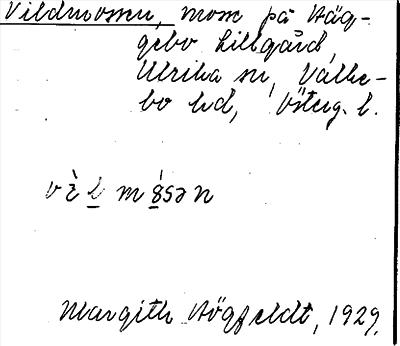 Vildmossen, mosse på Häg-
gebo Lillgård
Ulrika sn, Valke-
bo hd, Österg. l.
vìlmósən
Margith Högfeldt, 1929.